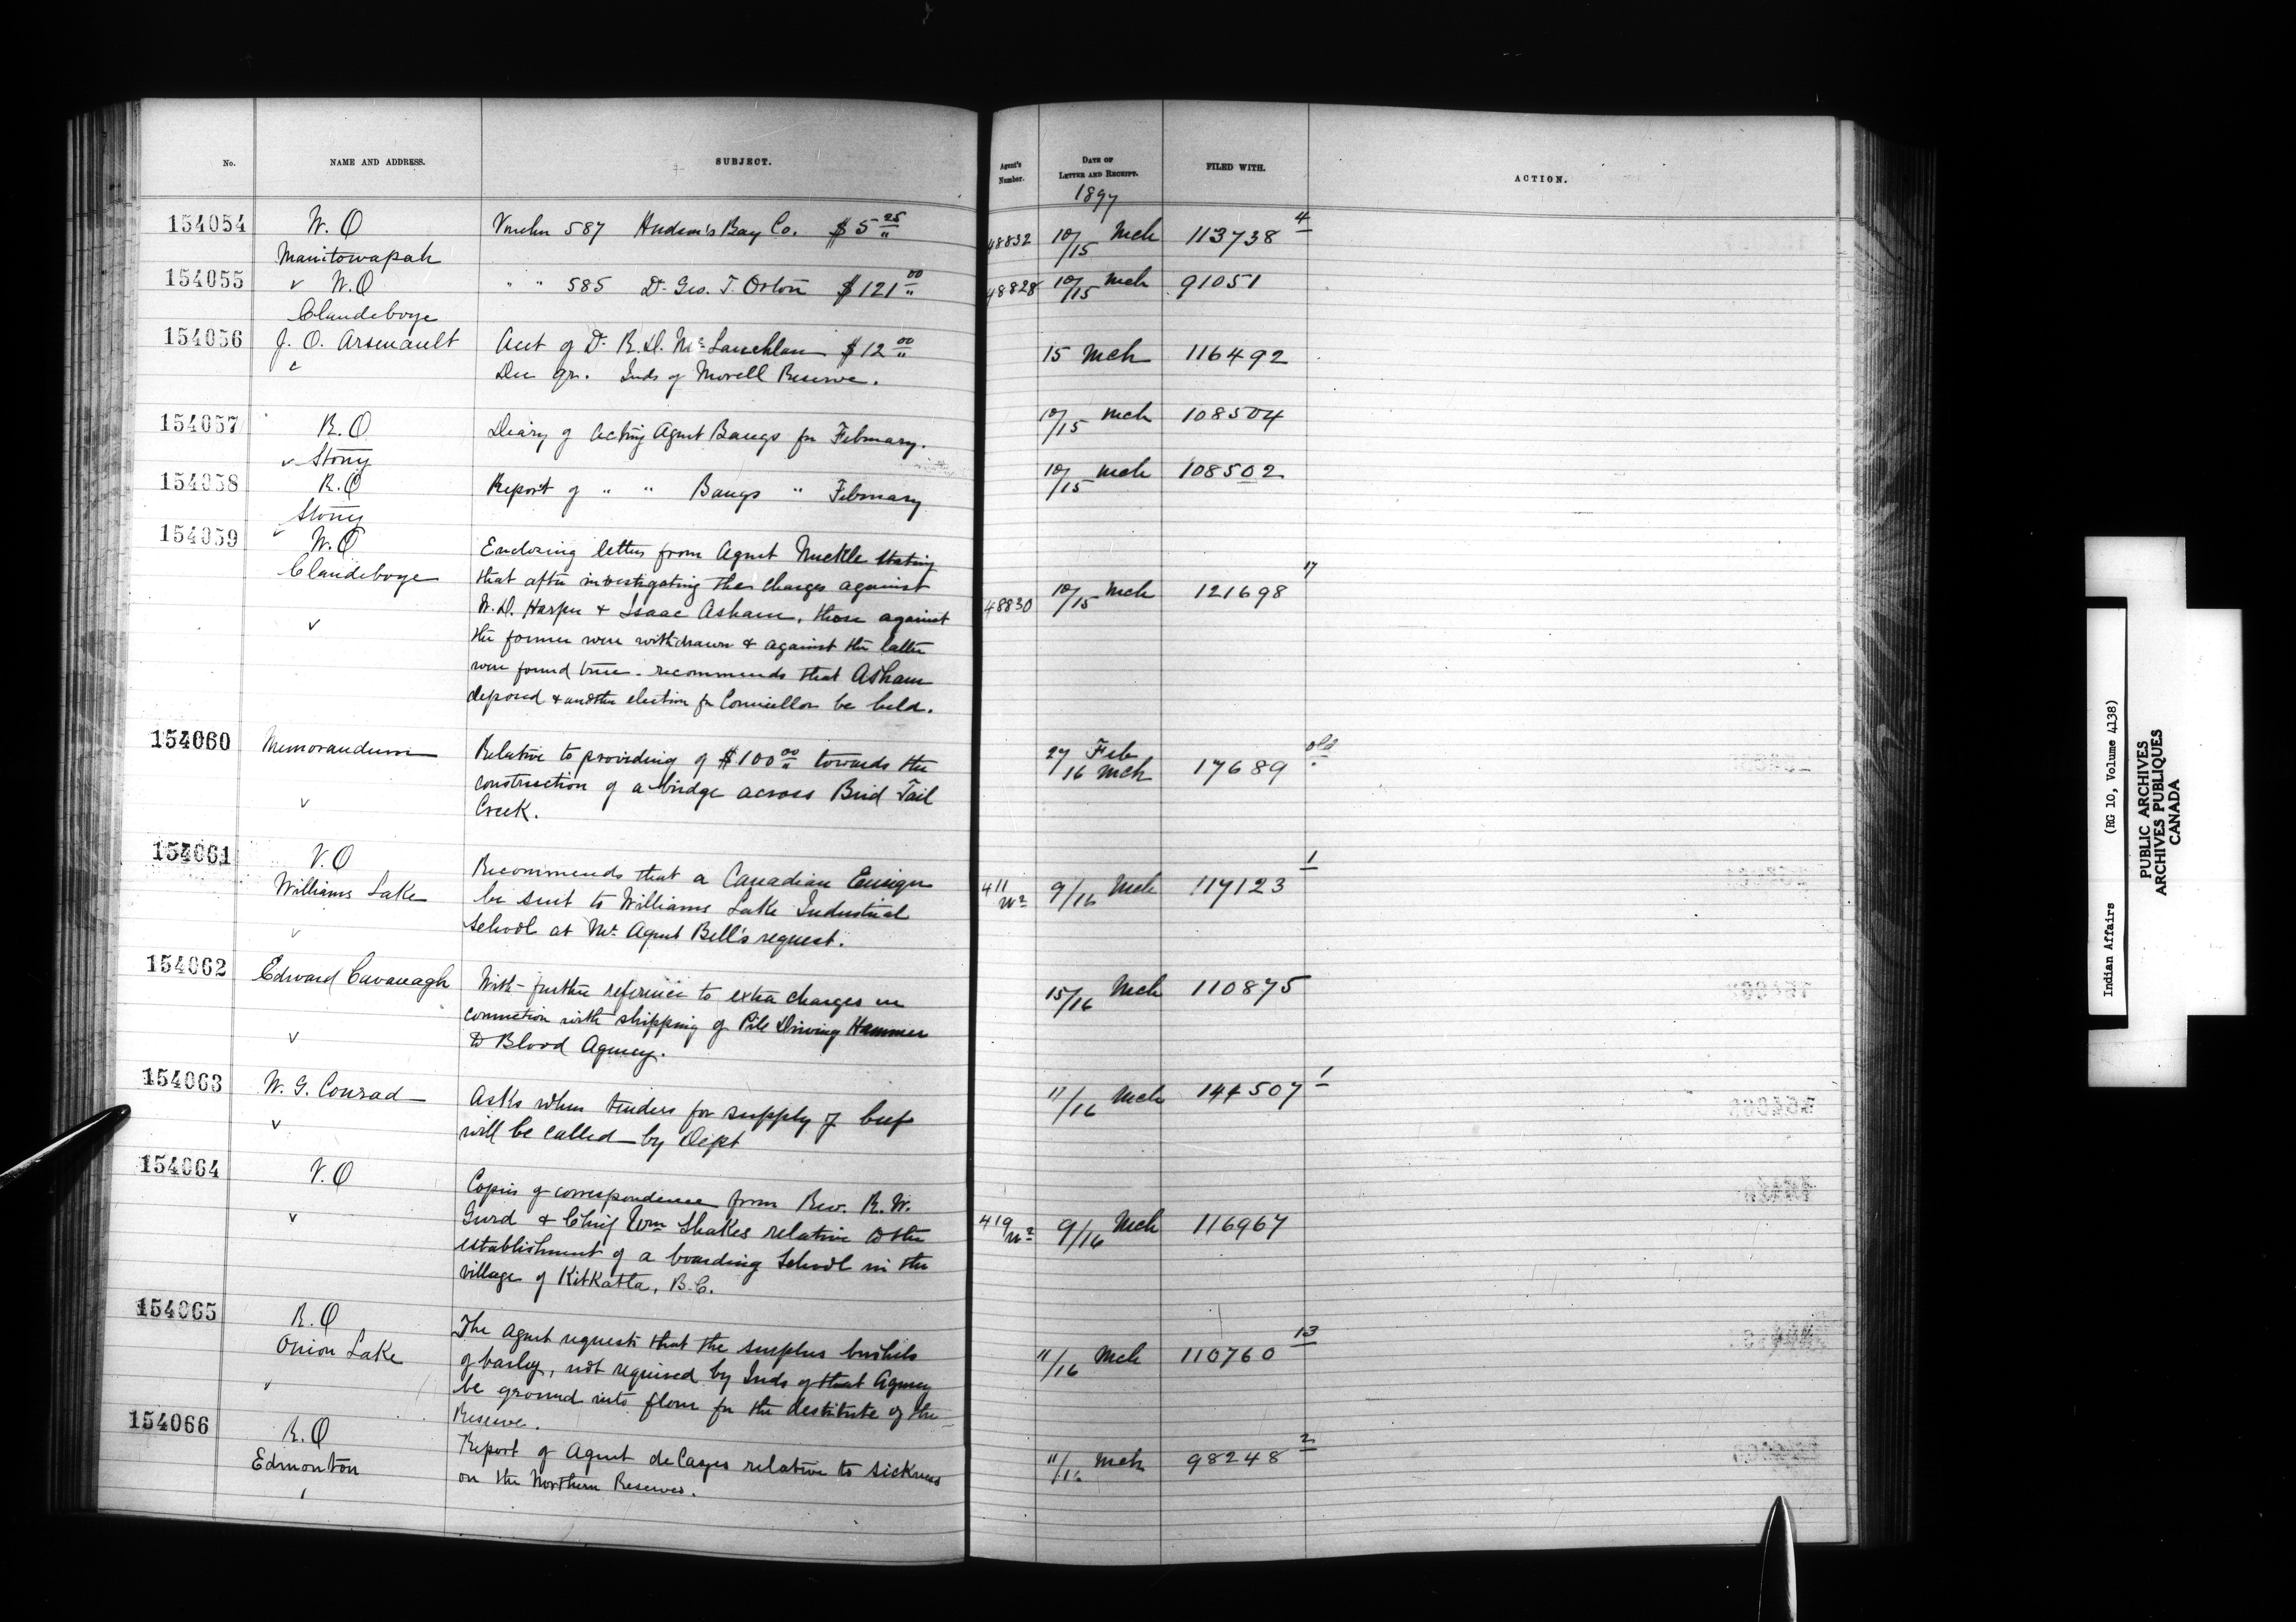 No.
NAME AND ADDRESS.
SUBJECT.
Agent's Number.
DATE OF LETTER AND RECEIPT.
FILED WITH.
ACTION.
1897
154054 W. O Voucher 587 Hudson's Bay Co. $5 25/" 48832 10/15 Mch 113738 4
Manitowapah
154055 v W. O " " 585 Dr Geo. T. Orton $121 00/" 48828 10/15 Mch 91051
Clandeboye
154056 J. O. Arsenault Acct of Dr R. D. McLauchlan $12 00/" 15 Mch 116492
Dec qr. Inds of Morell Reserve.
154057 R. O Diary of Acting Agent Bangs for February. 10/15 Mch 108504
v Stony
154058 R. O Report of " " Bangs " February 10/15 Mch 108502
Stony
154059 v W. O Enclosing letters from Agent Muckle stating
Clandeboye that after investigating the charges against
W. D. Harper & Isaac Asham, those against 48830 10/15 Mch 121698 17
v the former were withdrawn & against the latter
were found true. recommends that Asham
deposed & another election for Councillor be held.
154060 Memorandum Relative to providing of $100 00/" towards the 27 Feb old
construction of a bridge across Bird Tail /16 Mch 17689
v Creek.
154061 V. O Recommends that a Canadian Ensign 1
Williams Lake be sent to Williams Lake Industrial 411 9/16 Mch 117123
v School at Mr Agent Bell's request.
154062 Edward Cavanagh With further reference to extra charges in 15/16 Mch 110875
connection with shipping of Pile Driving Hammer
v to Blood Agency.
154063 W. G. Conrad Asks when tenders for supply of beef 11/16 Mch 144507 1
v will be called by Dept
154064 V. O Copies of correspondence from Rev. R. W.
v Gurd & Chief Wm Shakes relative to the 419 9/16 Mch 116967
establishment of a boarding School in the
village of Kitkatla, B.C.
154065 R. O The Agent requests that the surplus bushels 13
Onion Lake of barley, not required by Inds of that Agency 11/16 Mch 110760
v be ground into flour for the destitute of the
Reserve.
154066 R. O Report of Agent de Cazes relative to sickness 11/16 Mch 98248 2
Edmonton on the Northern Reserves.
Indian Affairs (RG 10, Volume 4138)
PUBLIC ARCHIVES
ARCHIVES PUBLIQUES
CANADA